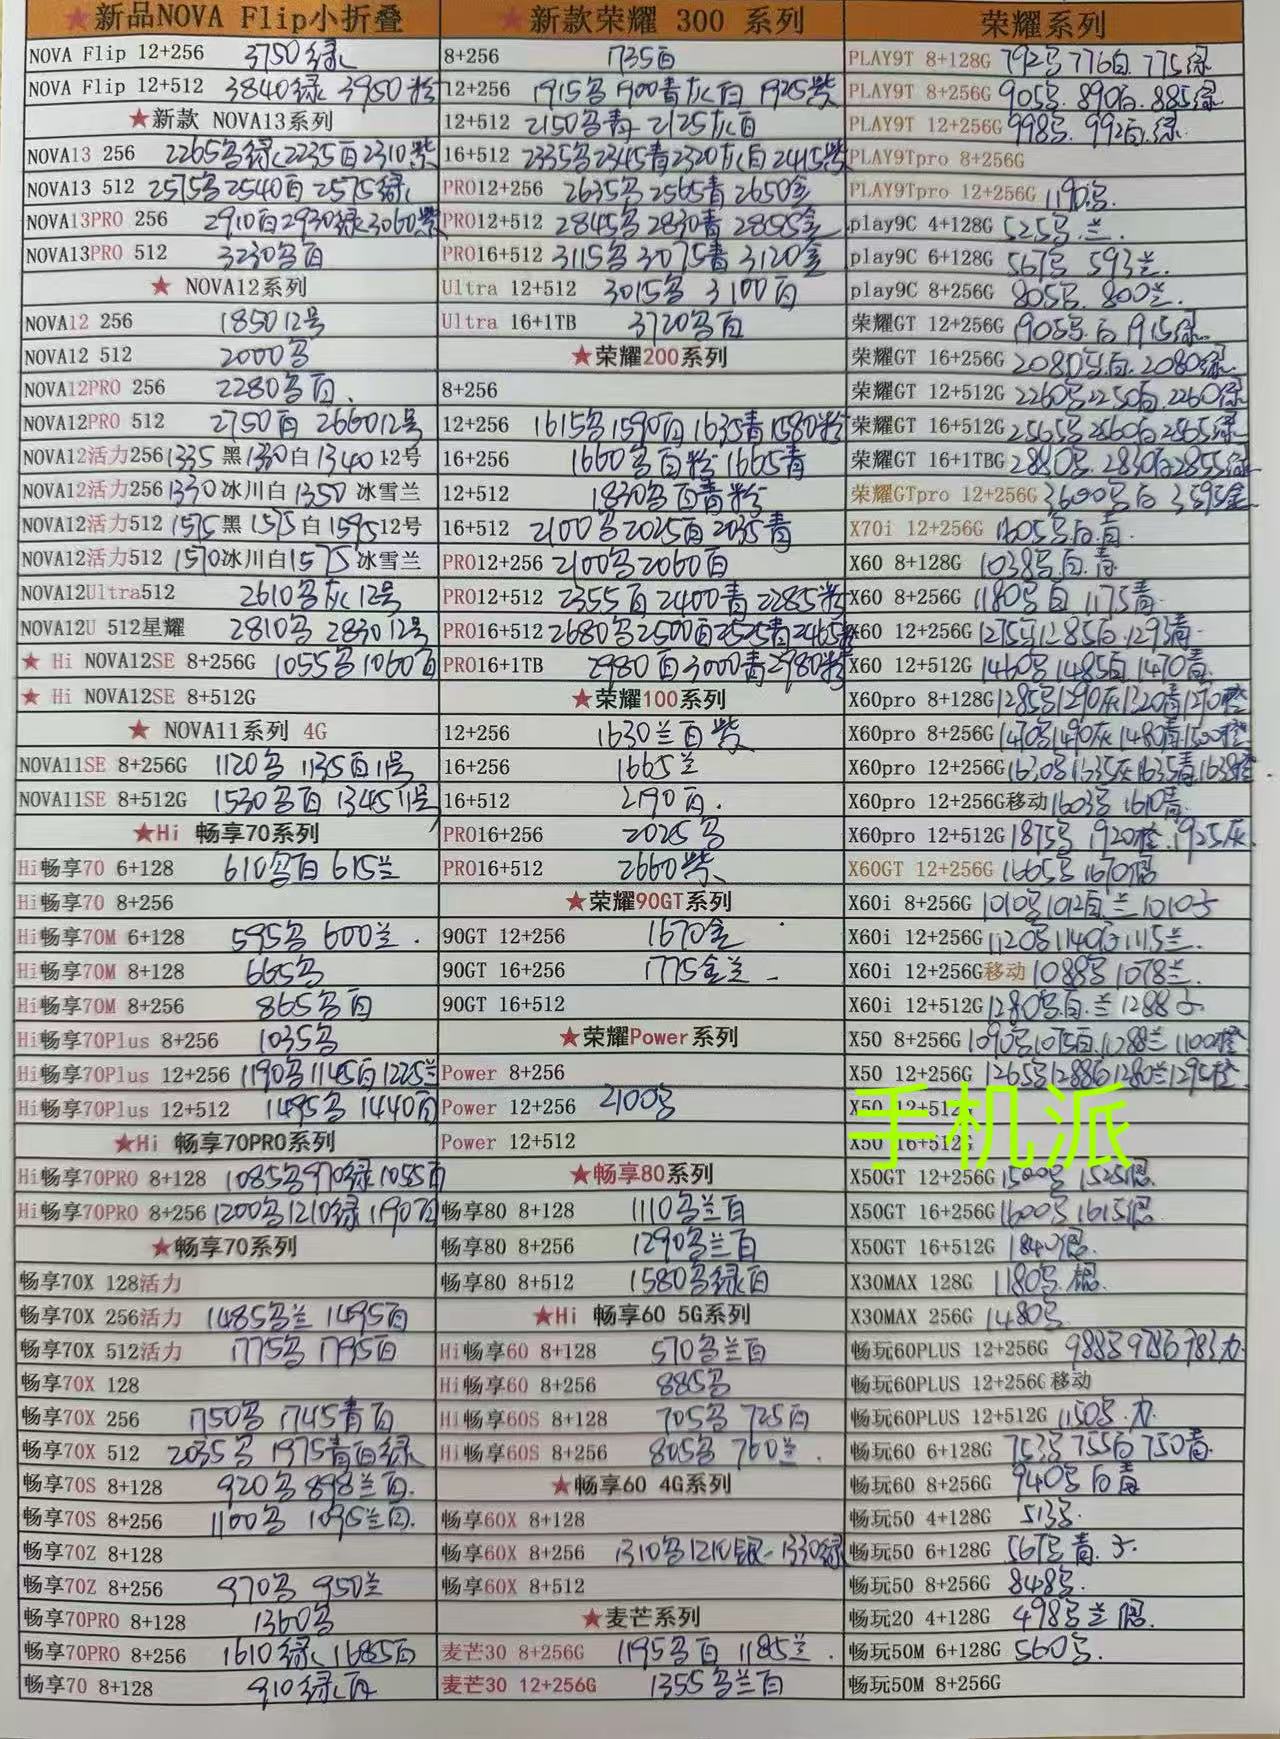 ★新品NOVA Flip小折叠
NOVA Flip 12+256 3750绿
NOVA Flip 12+512 3840绿 3950粉
★新款 NOVA13系列
NOVA13 256 2265黑绿 2235白 2310紫
NOVA13 512 2575黑 2540白 2575绿
NOVA13PRO 256 2910白 2930绿 3060紫
NOVA13PRO 512 3230黑白
★ NOVA12系列
NOVA12 256 1850 12号
NOVA12 512 2000黑
NOVA12PRO 256 2280黑白.
NOVA12PRO 512 2750白 2660 12号
NOVA12活力256 1335 黑 1330 白 1340 12号
NOVA12活力256 1330 冰川白 1350 冰雪兰
NOVA12活力512 1575 黑 1575 白 1595 12号
NOVA12活力512 1570 冰川白 1575 冰雪兰
NOVA12Ultra512 2610黑灰 12号
NOVA12U 512星耀 2810黑 2830 12号
★ Hi NOVA12SE 8+256G 1055黑 1060白
★ Hi NOVA12SE 8+512G
★ NOVA11系列 4G
NOVA11SE 8+256G 1120黑 1135白 11号
NOVA11SE 8+512G 1530黑白 1345 11号
★Hi 畅享70系列
Hi畅享70 6+128 610黑白 615兰
Hi畅享70 8+256
Hi畅享70M 6+128 595黑 600兰.
Hi畅享70M 8+128 665黑
Hi畅享70M 8+256 865黑白
Hi畅享70Plus 8+256 1035黑
Hi畅享70Plus 12+256 1190黑 1145白 1225兰
Hi畅享70Plus 12+512 1495黑 1440白
★Hi 畅享70PRO系列
Hi畅享70PRO 8+128 1085黑 970绿 1055白
Hi畅享70PRO 8+256 1200黑 1210绿 1190白
★畅享70系列
畅享70X 128活力
畅享70X 256活力 1485黑兰 1495白
畅享70X 512活力 1775黑 1795白
畅享70X 128
畅享70X 256 1750黑 1745青白
畅享70X 512 2035黑 1975青白绿
畅享70S 8+128 920黑 898兰白.
畅享70S 8+256 1100黑 1095兰白.
畅享70Z 8+128
畅享70Z 8+256 970黑 950兰
畅享70PRO 8+128 1360黑
畅享70PRO 8+256 1610绿 1685白
畅享70 8+128 910绿白
★新款荣耀 300 系列
8+256 1735白
12+256 1915黑 1900青灰白 1925紫
12+512 2150黑青 2125灰白
16+512 2335黑 2345青 2320灰白 2415紫
PRO12+256 2635黑 2565青 2650金
PRO12+512 2845黑 2830青 2855金
PRO16+512 3115黑 3075青 3120金
Ultra 12+512 3015黑 3100白
Ultra 16+1TB 3720黑白
★荣耀200系列
8+256
12+256 1615黑 1590白 1635青 1580粉
16+256 1660黑白粉 1665青
12+512 1830黑白青粉
16+512 2100黑 2025白 2035青
PRO12+256 2100黑 2060白
PRO12+512 2355白 2400青 2285粉
PRO16+512 2680黑 2500白 2525青 2465粉
PRO16+1TB 2980白 3000青 2980粉
★荣耀100系列
12+256 1630兰白紫
16+256 1665兰
16+512 2190白.
PRO16+256 2025黑
PRO16+512 2660紫
★荣耀90GT系列
90GT 12+256 1670金
90GT 16+256 1775金兰
90GT 16+512
★荣耀Power系列
Power 8+256
Power 12+256 2100黑
Power 12+512
★畅享80系列
畅享80 8+128 1110黑兰白
畅享80 8+256 1290黑兰白
畅享80 8+512 1580黑绿白
★Hi 畅享60 5G系列
Hi畅享60 8+128 570黑兰白
Hi畅享60 8+256 885黑
Hi畅享60S 8+128 705黑 725白
Hi畅享60S 8+256 805黑 760兰.
★畅享60 4G系列
畅享60X 8+128
畅享60X 8+256 1310黑 1210银 1330绿
畅享60X 8+512
★麦芒系列
麦芒30 8+256G 1195黑白 1185兰.
麦芒30 12+256G 1355黑兰白
荣耀系列
PLAY9T 8+128G 792黑 776白 775绿
PLAY9T 8+256G 905黑. 890白. 885绿
PLAY9T 12+256G 998黑. 992白.绿
PLAY9Tpro 8+256G
PLAY9Tpro 12+256G 1190黑.
play9C 4+128G 525黑.兰.
play9C 6+128G 567黑 593兰.
play9C 8+256G 805黑. 800兰.
荣耀GT 12+256G 1905黑.白 1915绿
荣耀GT 16+256G 2080黑白. 2080绿
荣耀GT 12+512G 2260黑 2250白 2260绿
荣耀GT 16+512G 2565黑 2560白 2565绿
荣耀GT 16+1TBG 2880黑. 2830白 2855绿
荣耀GTpro 12+256G 3600黑白 3595金
X70i 12+256G 1405黑.白.青.
X60 8+128G 1038黑.白.青
X60 8+256G 1180黑白 1175青
X60 12+256G 1275黑 1285白 1293青
X60 12+512G 1460黑 1485白 1470青
X60pro 8+128G 1285黑 1290灰 1320青 1270橙
X60pro 8+256G 1470黑 1490灰 1480青 1500橙
X60pro 12+256G 1630黑 1635灰 1635青 1638橙
X60pro 12+256G移动 1603黑 1610青
X60pro 12+512G 1875黑 1920橙. 1925灰
X60GT 12+256G 1665黑 1670银
X60i 8+256G 1010黑 1012白.兰 1010子
X60i 12+256G 1120黑 1140白 1115兰.
X60i 12+256G移动 1088黑 1078兰.
X60i 12+512G 1280黑白.兰 1288子
X50 8+256G 1090黑 1075白. 1288兰 1100橙
X50 12+256G 1265黑 1288白 1280兰 1295橙
X50 12+512
X50 16+512G
手机派
X50GT 12+256G 1500黑 1525银
X50GT 16+256G 1600黑 1615银
X50GT 16+512G 1840银.
X30MAX 128G 1180黑.银.
X30MAX 256G 1480黑
畅玩60PLUS 12+256G 988黑
畅玩60PLUS 12+256G 移动
畅玩60PLUS 12+512G 1150黑.
畅玩60 6+128G 753黑 755白 750青
畅玩60 8+256G 940黑白青
畅玩50 4+128G 513黑.
畅玩50 6+128G 567黑青.子.
畅玩50 8+256G 848黑.
畅玩20 4+128G 498黑兰银.
畅玩50M 6+128G 560黑.
畅玩50M 8+256G